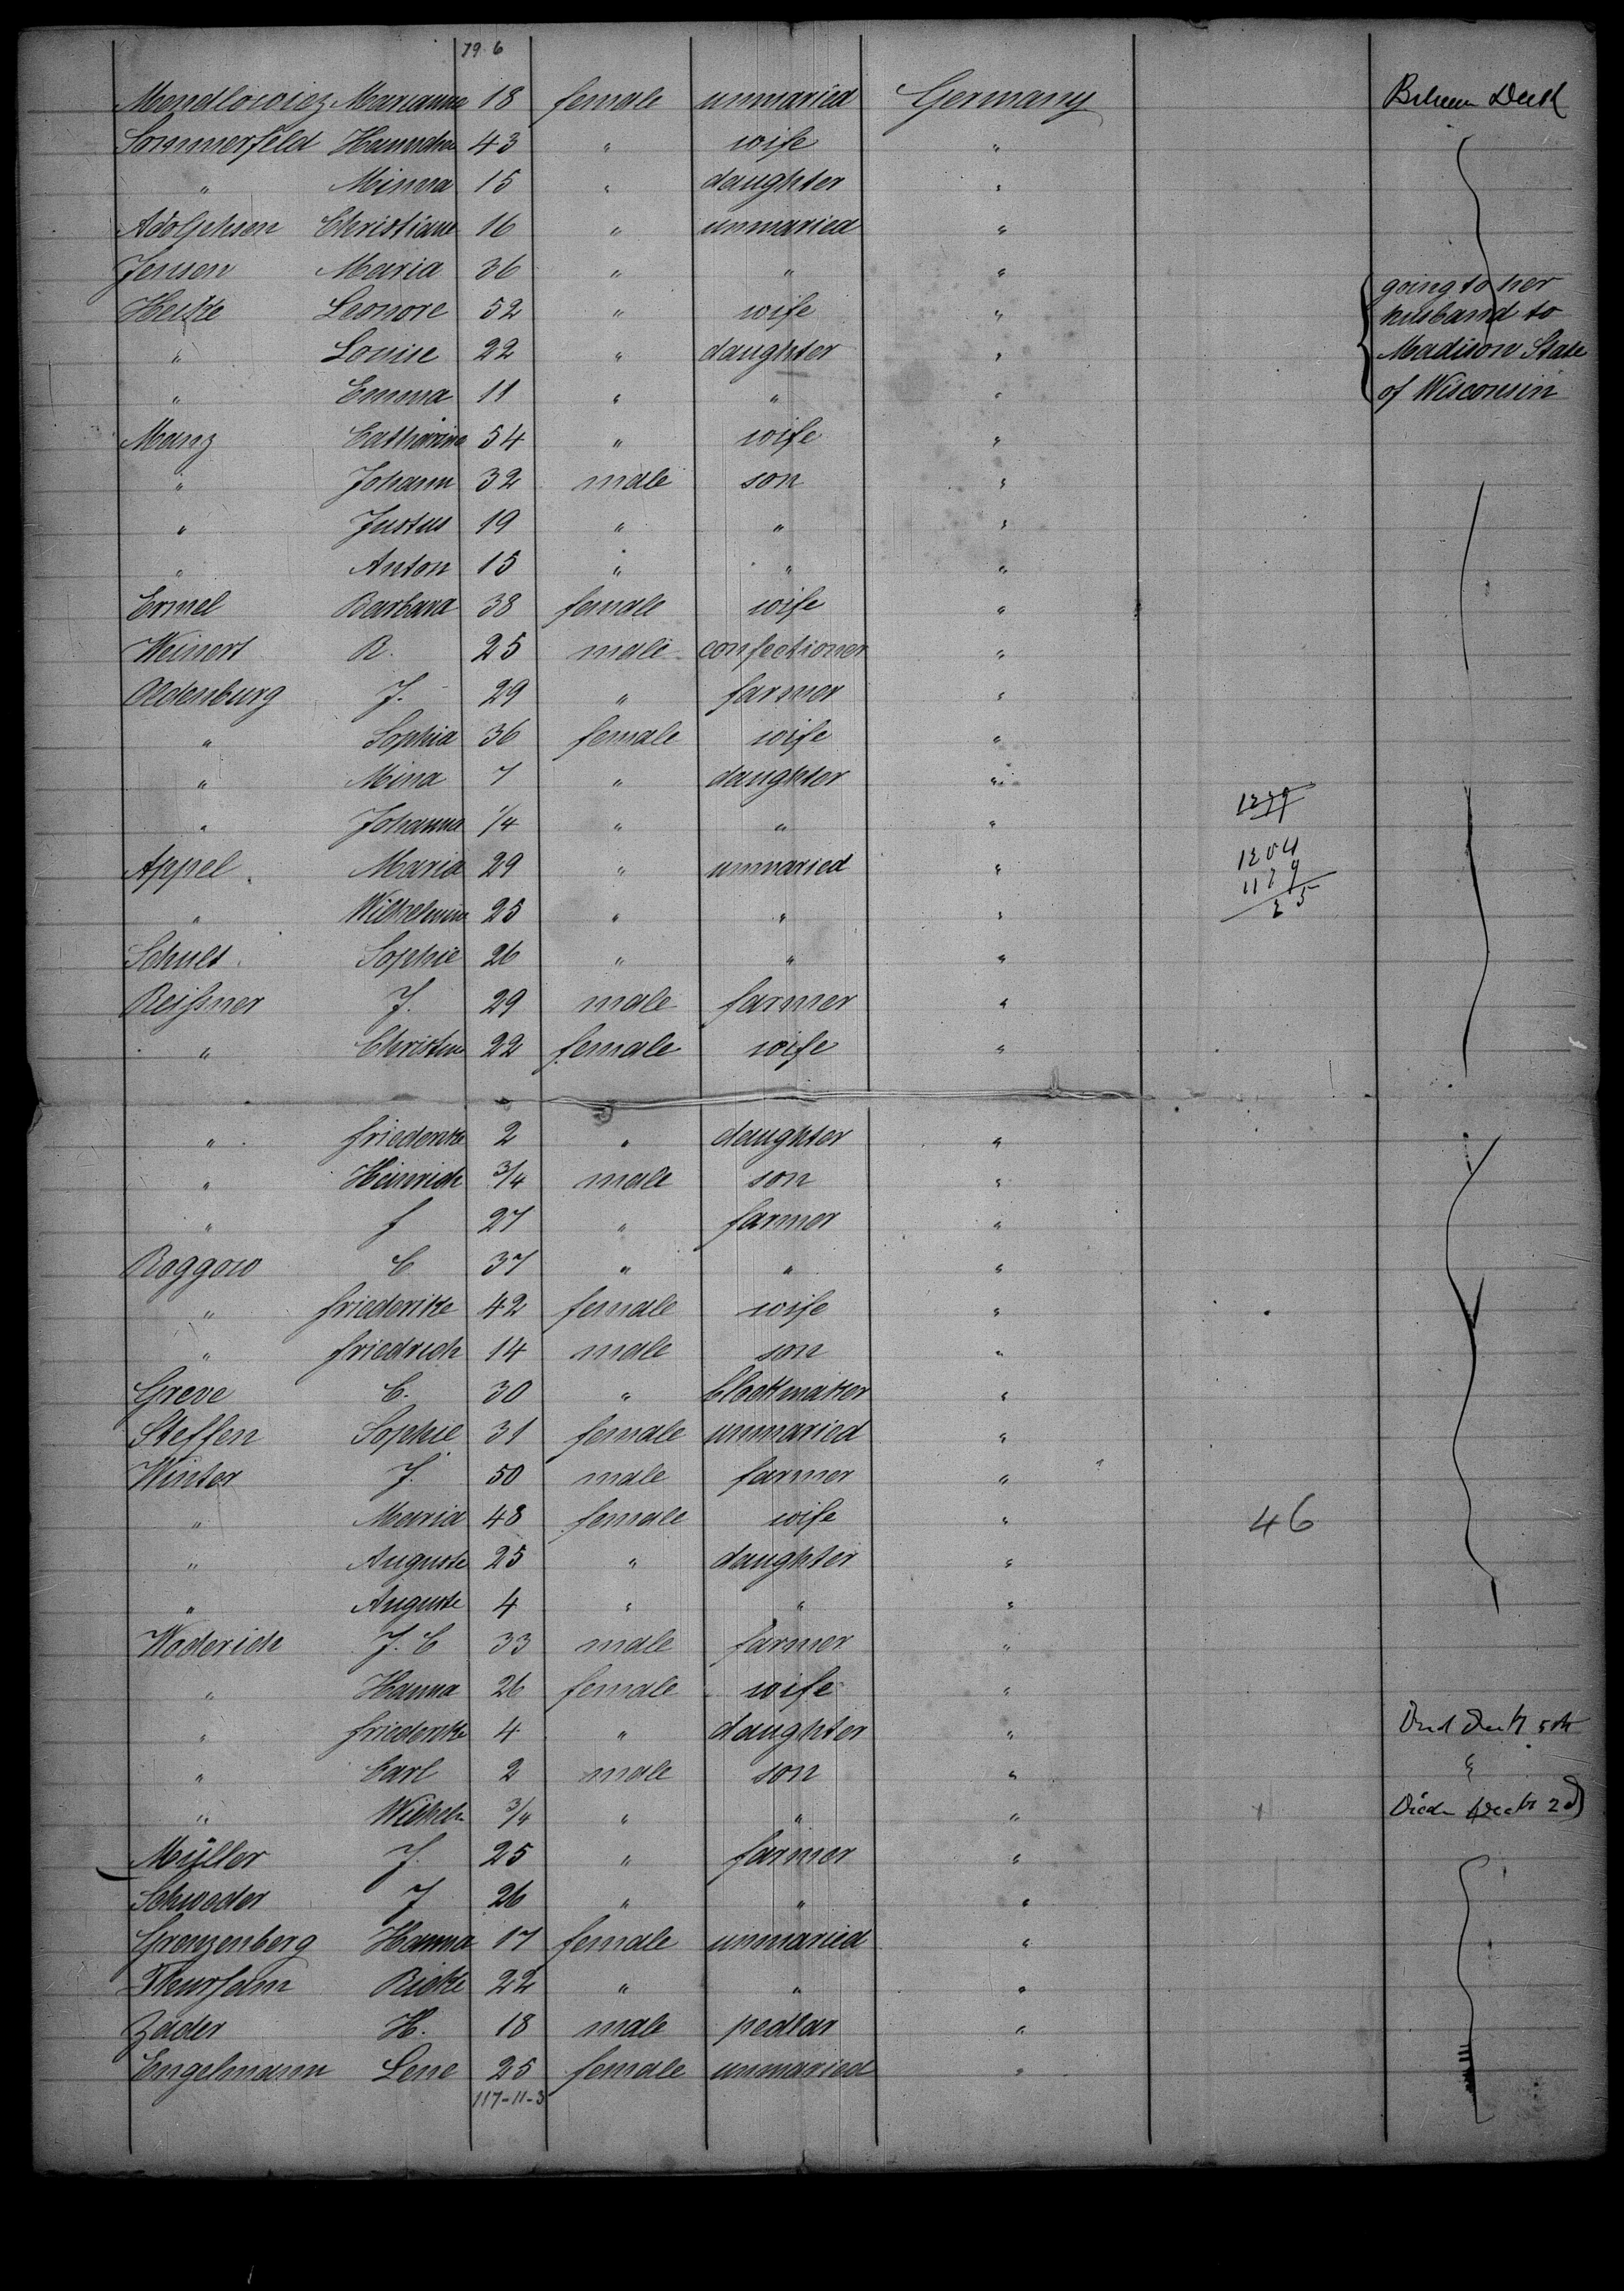 79 6
Mendlowicz Marianne 18 female unmaried Germany Between Deck
Sommerfeld Hannchen 43 " wife "
" Minna 15 " daughter "
Adolphsen Christiane 16 " unmaried "
Jensen Maria 36 " " "
Heikke Leonore 52 " wife " going to her husband to
" Louise 22 " daughter " Madison State
" Emma 11 " " " of Wisconsin
Manz Catharina 54 " wife "
" Johann 32 male son "
" Justus 19 " " "
" Anton 15 " " "
Ermel Barbara 38 female wife "
Weinert R. 25 male confectioner "
Oldenburg J. 29 " farmer "
" Sophia 36 female wife "
" Mina 7 " daughter "
" Johanna 1/4 " " "
Appel Maria 29 " unmaried " 1204
" Wilhelmina 25 " " " 1179
25
Schult Sophie 26 " " "
Reißner J. 29 male farmer "
" Christine 22 female wife "
" friederike 2 " daughter "
" Heinrich 3/4 male son "
" f 27 " farmer "
Roggow C 37 " " "
" friederike 42 female wife "
" friedrich 14 male son "
Greve C. 30 " Clockmaker "
Steffen Sophie 31 female unmaried "
Winter J. 50 male farmer "
" Maria 48 female wife " 46
" Auguste 25 " daughter "
" Auguste 4 " " "
Woderich J. C 33 male farmer "
" Hanna 26 female wife "
" friederike 4 " daughter "
" Carl 2 male son " "
" Wilhelm 3/4 " " " Died
Müller J. 25 " farmer "
Schweder J 26 " " "
Grenzenberg Hanna 17 female unmaried "
Rieke 22 " " "
Zäder H. 18 male pedlar "
Engelmann Lene 25 female unmaried "
117-11-3